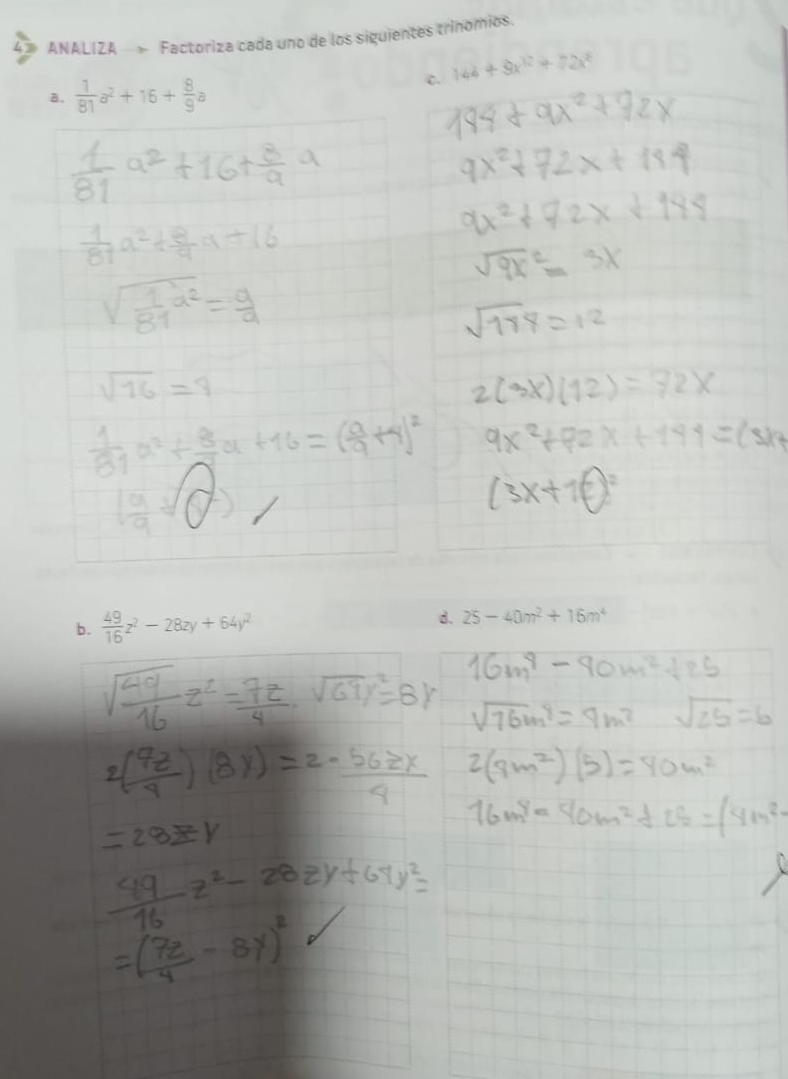 4 ANALIZA ➤ Factoriza cada uno de los siguientes trinomios.
a. 1/81 a² + 16 + 8/9 a
1/81 a² + 16 + 8/9 a
1/81 a² + 8/9 a + 16
√(1/81 a²) = a/9
√16 = 4
1/81 a² + 8/9 a + 16 = (a/9 + 4)²
c. 144 + 9x¹² + 72x⁶
144 + 9x² + 72x
9x² + 72x + 144
9x² + 72x + 144
√9x² = 3x
√144 = 12
2(3x)(12) = 72x
9x² + 72x + 144 = (3x+
b. 49/16 z² − 28zy + 64y²
√(49/16) z² = 7z/4 . √64y² = 8y
2(7z/4)(8y) = 2 · 56zy/4
= 28zy
49/16 z² − 28zy + 64y² =
= (7z/4 − 8y)²
d. 25 − 40m² + 16m⁴
16m⁴ − 40m² + 25
√16m⁴ = 4m² √25 = 5
2(4m²)(5) = 40m²
16m⁴ − 40m² + 25 = (4m² −